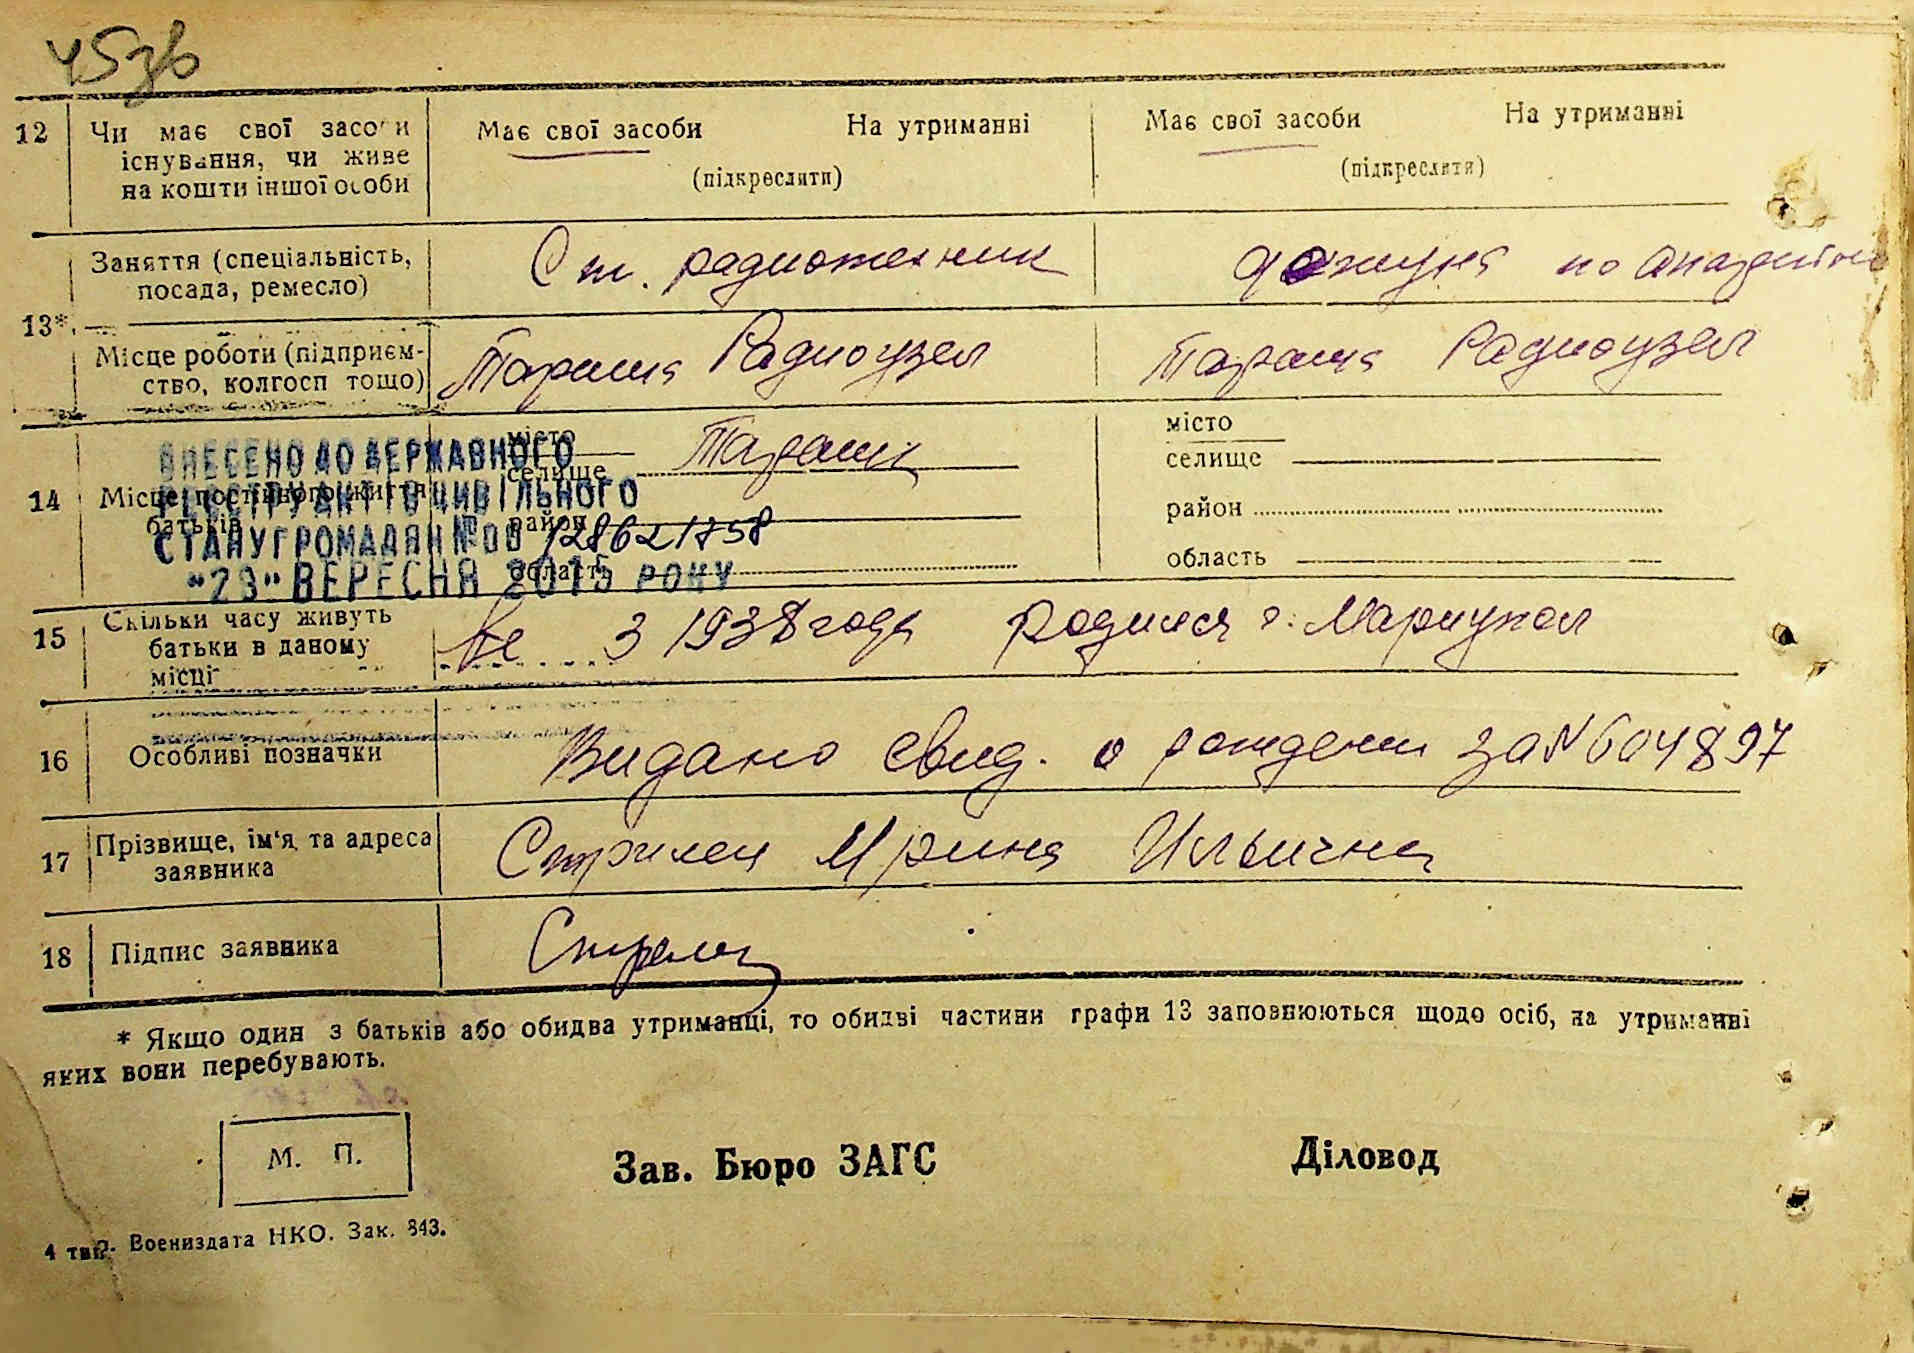 45зв
12 Чи має свої засоби існування, чи живе на кошти іншої особи
Має свої засоби На утриманні
(підкреслити)
Має свої засоби На утриманні
(підкреслити)
13*
Заняття (спеціальність, посада, ремесло)
Ст. радиотехник
по
Місце роботи (підприємство, колгосп тощо)
Тараща Радиоузел
Тараща Радиоузел
14 Місце постійного життя батьків
місто
селище Тараща
район
область
місто
селище
район
область
ВНЕСЕНО ДО ДЕРЖАВНОГО
РЕЄСТРУ АКТІВ ЦИВІЛЬНОГО
СТАНУ ГРОМАДЯН №00128621758
"23" ВЕРЕСНЯ 2015 РОКУ
15 Скільки часу живуть батьки в даному місці
З 1938 года родился г. Мариупол
16 Особливі позначки
Видано свид. о рождении за N 604897
17 Прізвище, ім'я та адреса заявника
Стрилец Ирина Ильична
18 Підпис заявника
Стрелец
* Якщо один з батьків або обидва утриманці, то обидві частини графи 13 заповнюються щодо осіб, на утриманні
яких вони перебувають.
М. П.
Зав. Бюро ЗАГС
Діловод
4 тип. Воениздата НКО. Зак. 843.